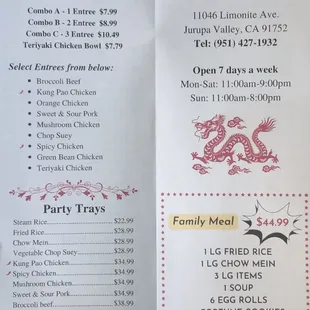 Combo A - 1 Entree $7.99
Combo B - 2 Entree $8.99
Combo C - 3 Entree $10.49
Teriyaki Chicken Bowl $7.79
Select Entrees from below:
• Broccoli Beef
• Kung Pao Chicken
• Orange Chicken
• Sweet & Sour Pork
• Mushroom Chicken
• Chop Suey
• Spicy Chicken
• Green Bean Chicken
• Teriyaki Chicken
Party Trays
Steam Rice $22.99
Fried Rice $28.99
Chow Mein $28.99
Vegetable Chop Suey $28.99
Kung Pao Chicken $34.99
Spicy Chicken $34.99
Mushroom Chicken $34.99
Sweet & Sour Pork $34.99
Broccoli beef $38.99
11046 Limonite Ave.
Jurupa Valley, CA 91752
Tel: (951) 427-1932
Open 7 days a week
Mon-Sat: 11:00am-9:00pm
Sun: 11:00am-8:00pm
Family Meal $44.99
1 LG FRIED RICE
1 LG CHOW MEIN
3 LG ITEMS
1 SOUP
6 EGG ROLLS